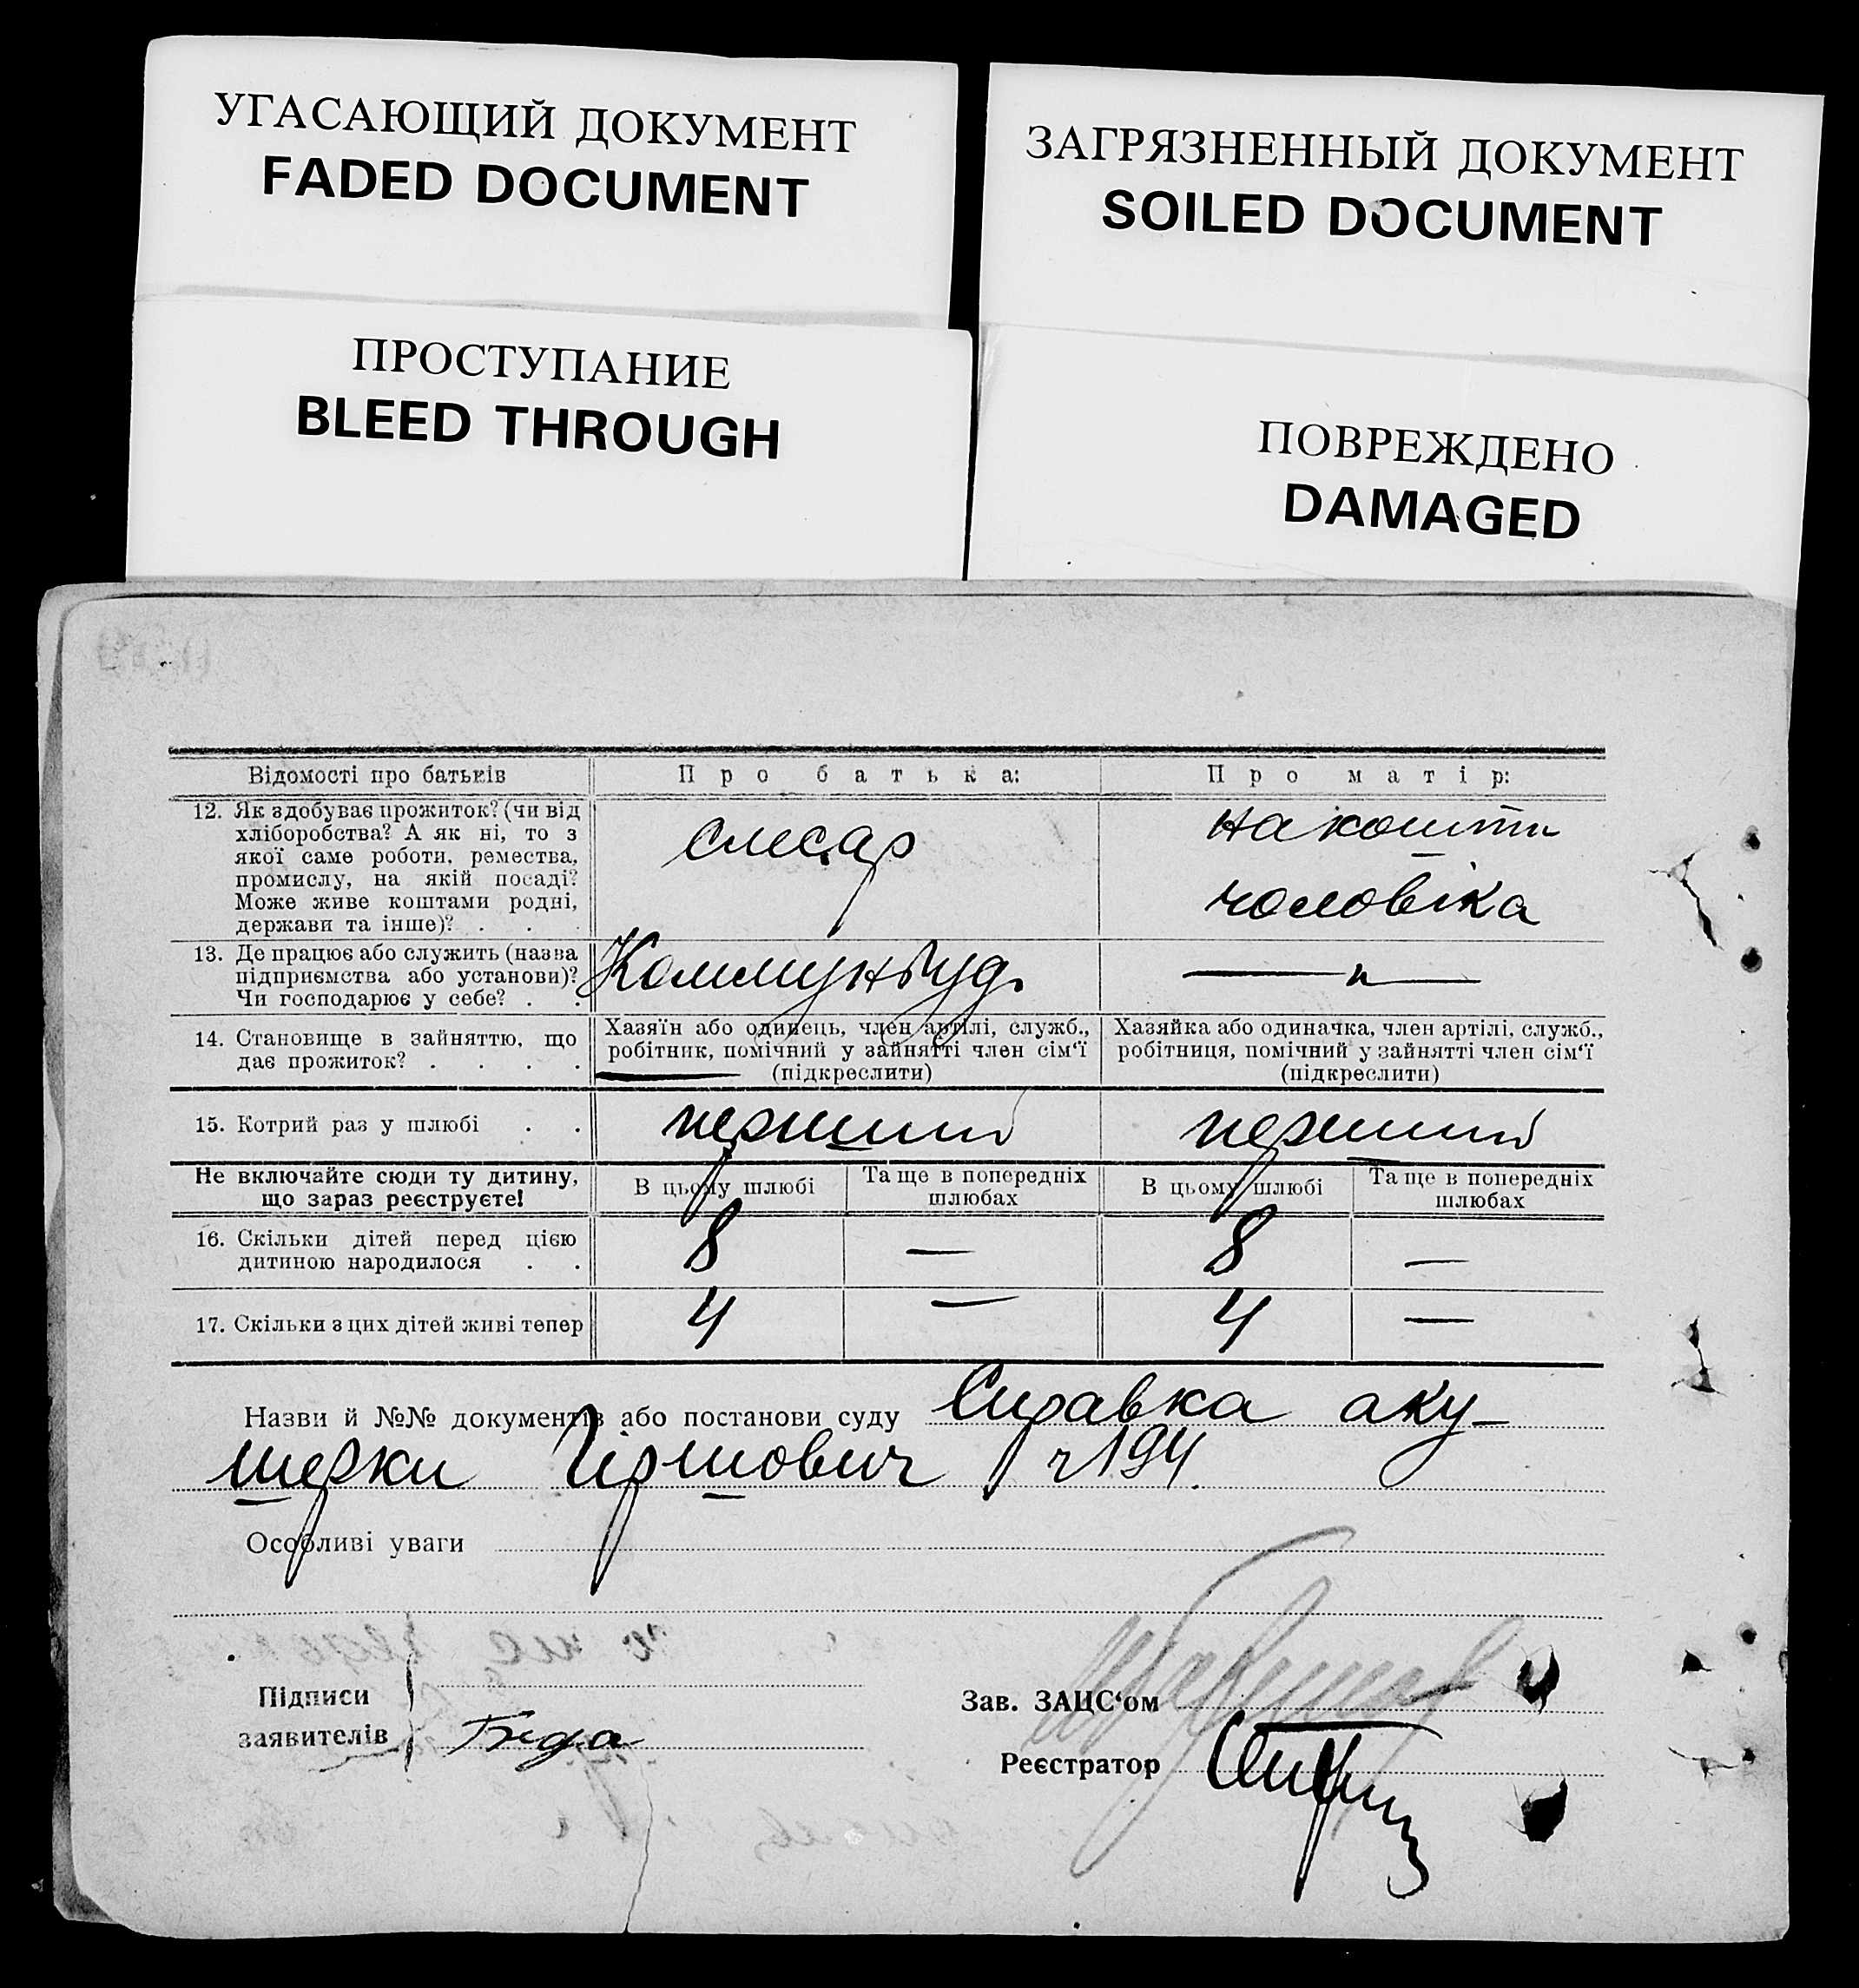 УГАСАЮЩИЙ ДОКУМЕНТ
FADED DOCUMENT
ЗАГРЯЗНЕННЫЙ ДОКУМЕНТ
SOILED DOCUMENT
ПРОСТУПАНИЕ
BLEED THROUGH
ПОВРЕЖДЕНО
DAMAGED
Відомості про батьків
Про батька:
Про матір:
12. Як здобуває прожиток? (чи від
хліборобства? А як ні, то з
якої саме роботи, ремества,
промислу, на якій посаді?
Може живе коштами родні,
держави та інше)? . . .
слесар
на кошти
чоловіка
13. Де працює або служить (назва
підприємства або установи)?
Чи господарює у себе? . .
Коммунбуд.
— " —
14. Становище в зайняттю, що
дає прожиток? . . . .
Хазяїн або одинець, член артілі, служб.,
робітник, помічний у зайнятті член сім‘ї
(підкреслити)
Хазяйка або одиначка, член артілі, служб.,
робітниця, помічний у зайнятті член сім‘ї
(підкреслити)
15. Котрий раз у шлюбі . .
перший
перший
Не включайте сюди ту дитину,
що зараз реєструєте!
В цьому шлюбі
Та ще в попередніх
шлюбах
В цьому шлюбі
Та ще в попередніх
шлюбах
16. Скільки дітей перед цією
дитиною народилося . .
8
—
8
—
17. Скільки з цих дітей живі тепер
4
—
4
—
Назви й №№ документів або постанови суду Справка аку-
шерки Гіршович ч194.
Особливі уваги
Підписи
заявителів
Зав. ЗАЦС‘ом
Реєстратор